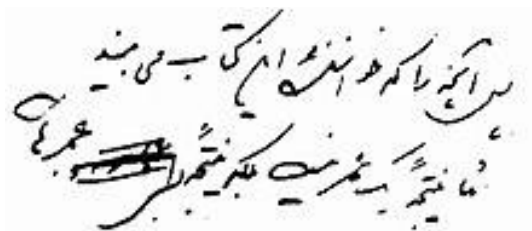 پس آنچه را که خوانندهٔ این کتاب می بیند
نتیجهٔ عمر نیست بلکه نتیجهٔ عمرهاست